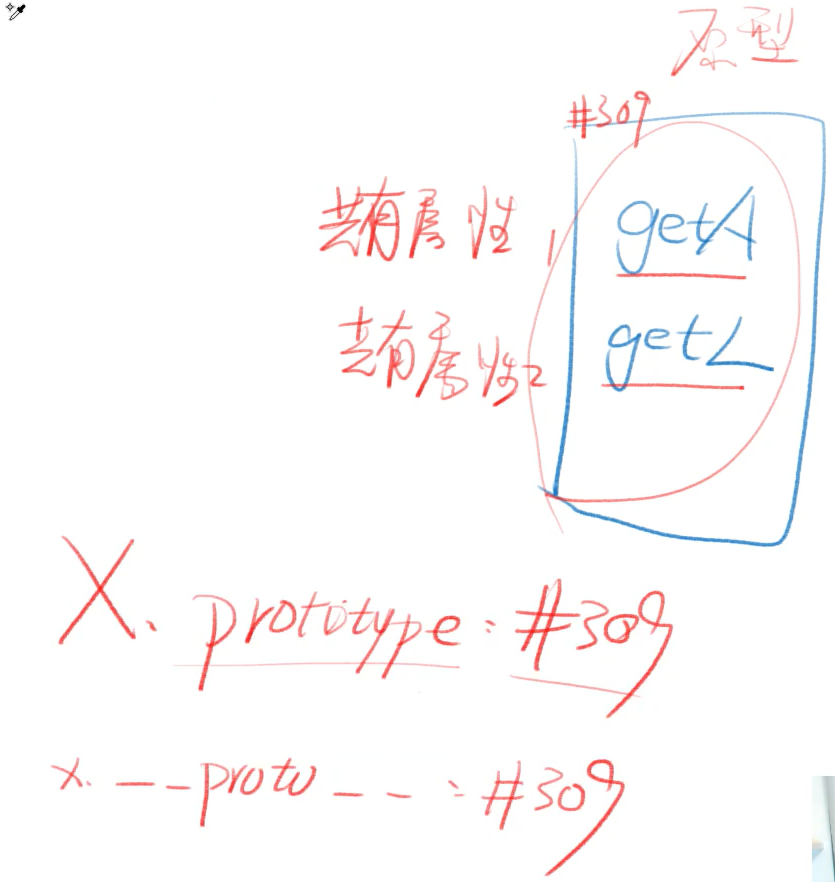 原型
#309
共有属性1
getA
共有属性2
getL
X.prototype:#309
x.__proto__:#309